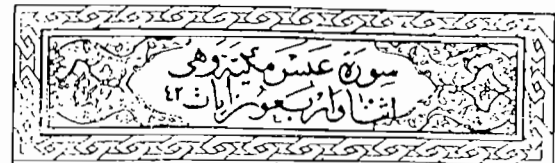 سورة عبس مكية وهي
اثنتا واربعون ايات ٤٢